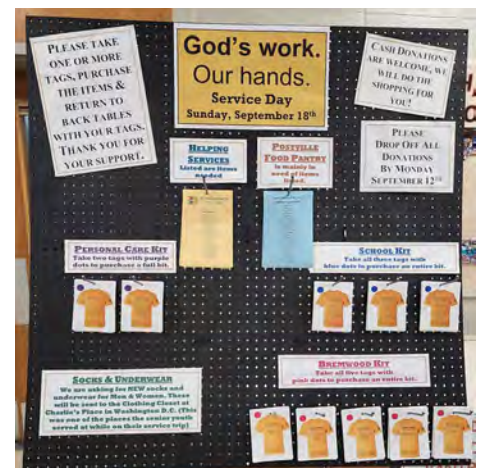 PLEASE TAKE
ONE OR MORE
TAGS, PURCHASE
THE ITEMS &
RETURN TO
BACK TABLES
WITH YOUR TAGS.
THANK YOU FOR
YOUR SUPPORT.
God's work.
Our hands.
Service Day
Sunday, September 18th
CASH DONATIONS
ARE WELCOME, WE
WILL DO THE
SHOPPING FOR
YOU!
PLEASE
DROP OFF ALL
DONATIONS
BY MONDAY
SEPTEMBER 12TH
HELPING
SERVICES
Listed are items
needed
POSTVILLE
FOOD PANTRY
is mainly in
need of items
listed.
PERSONAL CARE KIT
Take two tags with purple
dots to purchase a full kit.
SCHOOL KIT
Take all three tags with
blue dots to purchase an entire kit.
BREMWOOD KIT
Take all five tags with
pink dots to purchase an entire kit.
SOCKS & UNDERWEAR
We are asking for NEW socks and
underwear for Men & Women. These
will be sent to the Clothing Closet at
Charlie's Place in Washington D.C. (This
was one of the places the senior youth
served at while on their service trip)